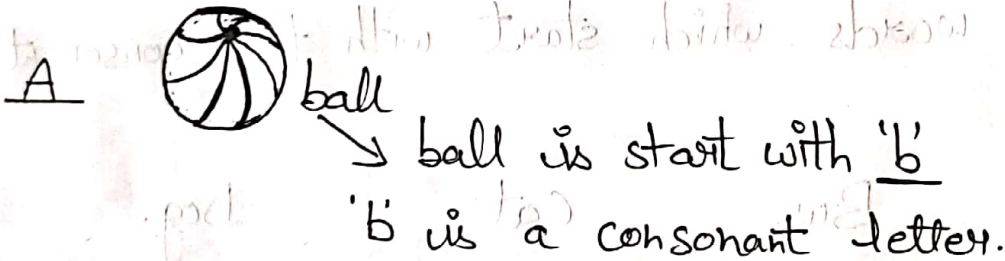 A ball
ball is start with 'b'
'b' is a consonant letter.